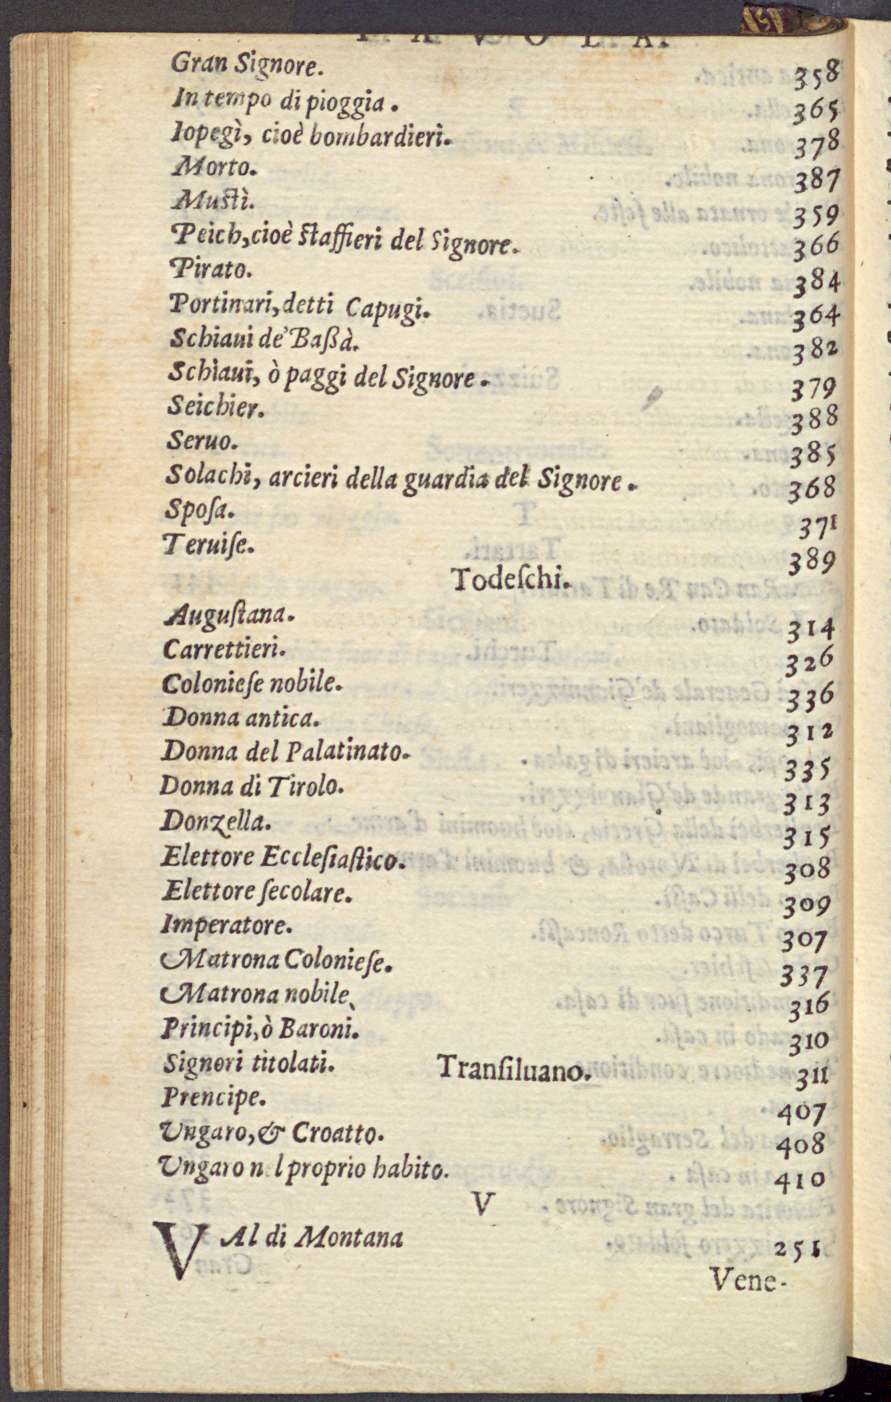 TAVOLA.
Gran Signore. 358
In tempo di pioggia. 365
Iopegì, cioè bombardieri. 378
Morto. 387
Muſtì. 359
Peich, cioè ſtaffieri del Signore. 366
Pirato. 384
Portinari, detti Capugi. 364
Schiaui de' Baßà. 382
Schiaui, ò paggi del Signore. 379
Seichier. 388
Seruo. 385
Solachi, arcieri della guardia del Signore. 368
Spoſa. 371
Teruiſe. 389
Todeſchi.
Auguſtana. 314
Carrettieri. 326
Colonieſe nobile. 336
Donna antica. 312
Donna del Palatinato. 335
Donna di Tirolo. 313
Donzella. 315
Elettore Eccleſiaſtico. 308
Elettore ſecolare. 309
Imperatore. 307
Matrona Colonieſe. 337
Matrona nobile. 316
Principi, ò Baroni. 310
Signori titolati. 311
Tranſiluano.
Prencipe. 407
Vngaro, & Croatto. 408
Vngaro nel proprio habito. 410
V
VAl di Montana 251
Vene-